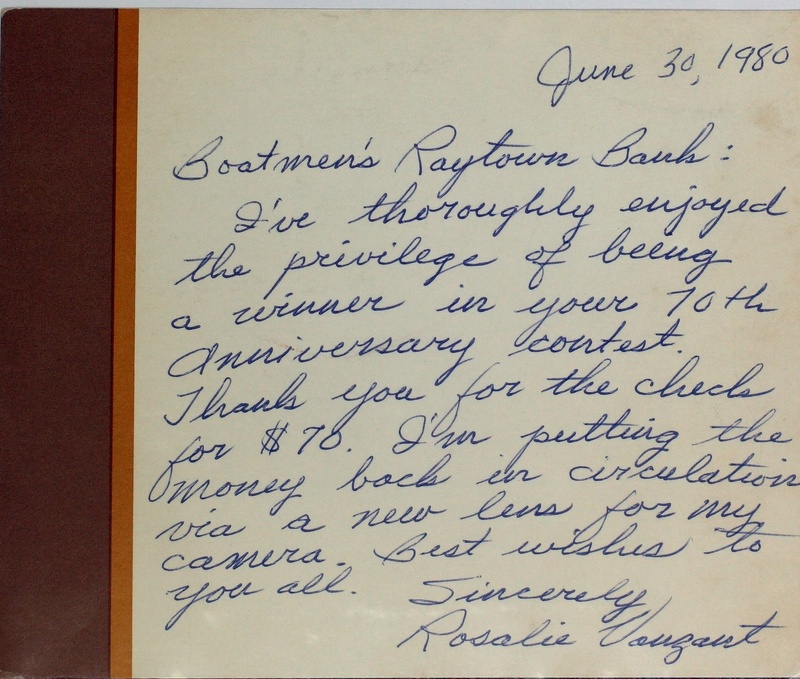 June 30, 1980
Boatmen's Raytown Bank:
I've thoroughly enjoyed
the privilege of being
a winner in your 70th
Anniversary contest.
Thank you for the check
for $70. I'm putting the
money back in circulation
via a new lens for my
camera. Best wishes to
you all. Sincerely
Rosalie Vanzant